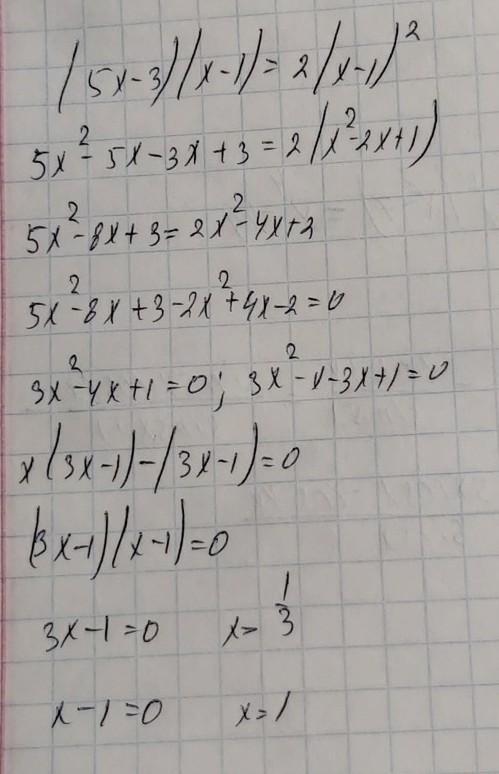 (5x-3)(x-1)=2(x-1)²
5x²-5x-3x+3=2(x²-2x+1)
5x²-8x+3=2x²-4x+2
5x²-8x+3-2x²+4x-2=0
3x²-4x+1=0; 3x²-x-3x+1=0
x(3x-1)-(3x-1)=0
(3x-1)(x-1)=0
3x-1=0 x=1/3
x-1=0 x=1